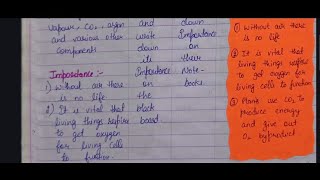 Vapour, CO2, argon and down
and various other write Importance
components down on
its their
Importance :- Importance Note-
1) without air there on books
is no life the
2) It is vital that black
living things respire board.
to get oxygen
for living cells
to function.
1) without air there
is no life
2) It is vital that
living things respire
to get oxygen for
living cells to function
3) Plans use CO2 to
produce energy
and give out
O2 byproduct